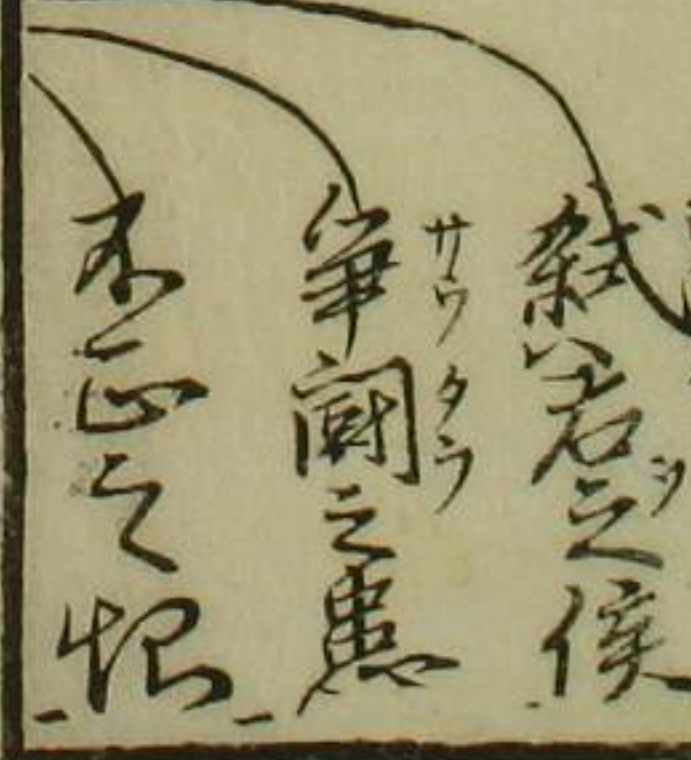 弑君之侯
爭鬪之患
サウタウ
不正之恨